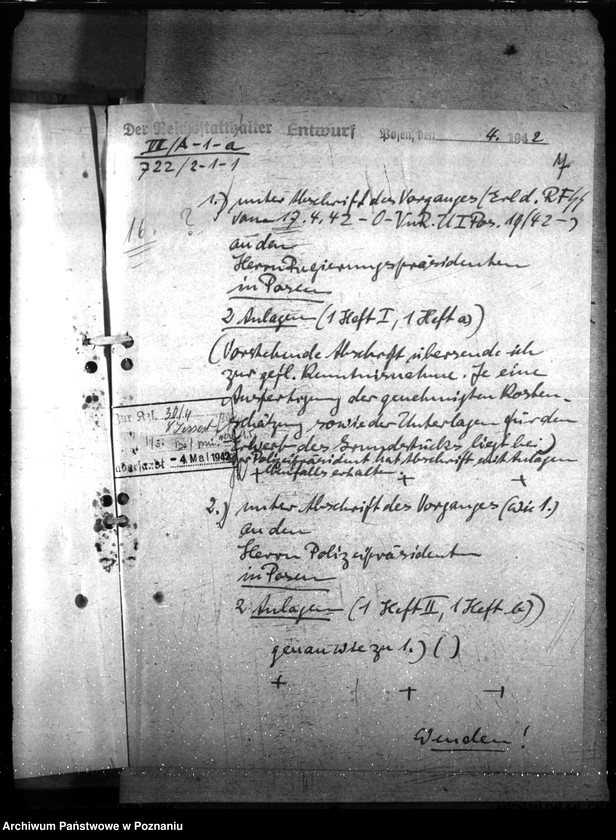 Der Reichsstatthalter Entwurf Posen, den 4. 1942
VI/A-1-a
722/2-1-1
1.) unter Abschrift des Vorganges (Erl. d. RFSS
vom 17.4.42 - O-VuR. II Pos. 19/42 -)
16. ?
an den
Herrn Regierungspräsidenten
in Posen
2 Anlagen (1 Heft I, 1 Heft a)
(Vorstehende Abschrift übersende ich
zur gefl. Kenntnisnahme. Je eine
Ausfertigung der genehmigten Kosten-
schätzung sowie der Unterlagen für den
Erwerb des Grundstücks liegt bei.)
Der Polizeipräsident hat Abschrift mit Anlagen
ebenfalls erhalten.
zur Kzl. 30/4
überfandt -4. Mai 1942
2.) unter Abschrift des Vorganges (wie 1.)
an den
Herrn Polizeipräsidenten
in Posen
2 Anlagen (1 Heft II, 1 Heft b)
genau wie zu 1.) ( )
Wenden!
Archiwum Państwowe w Poznaniu